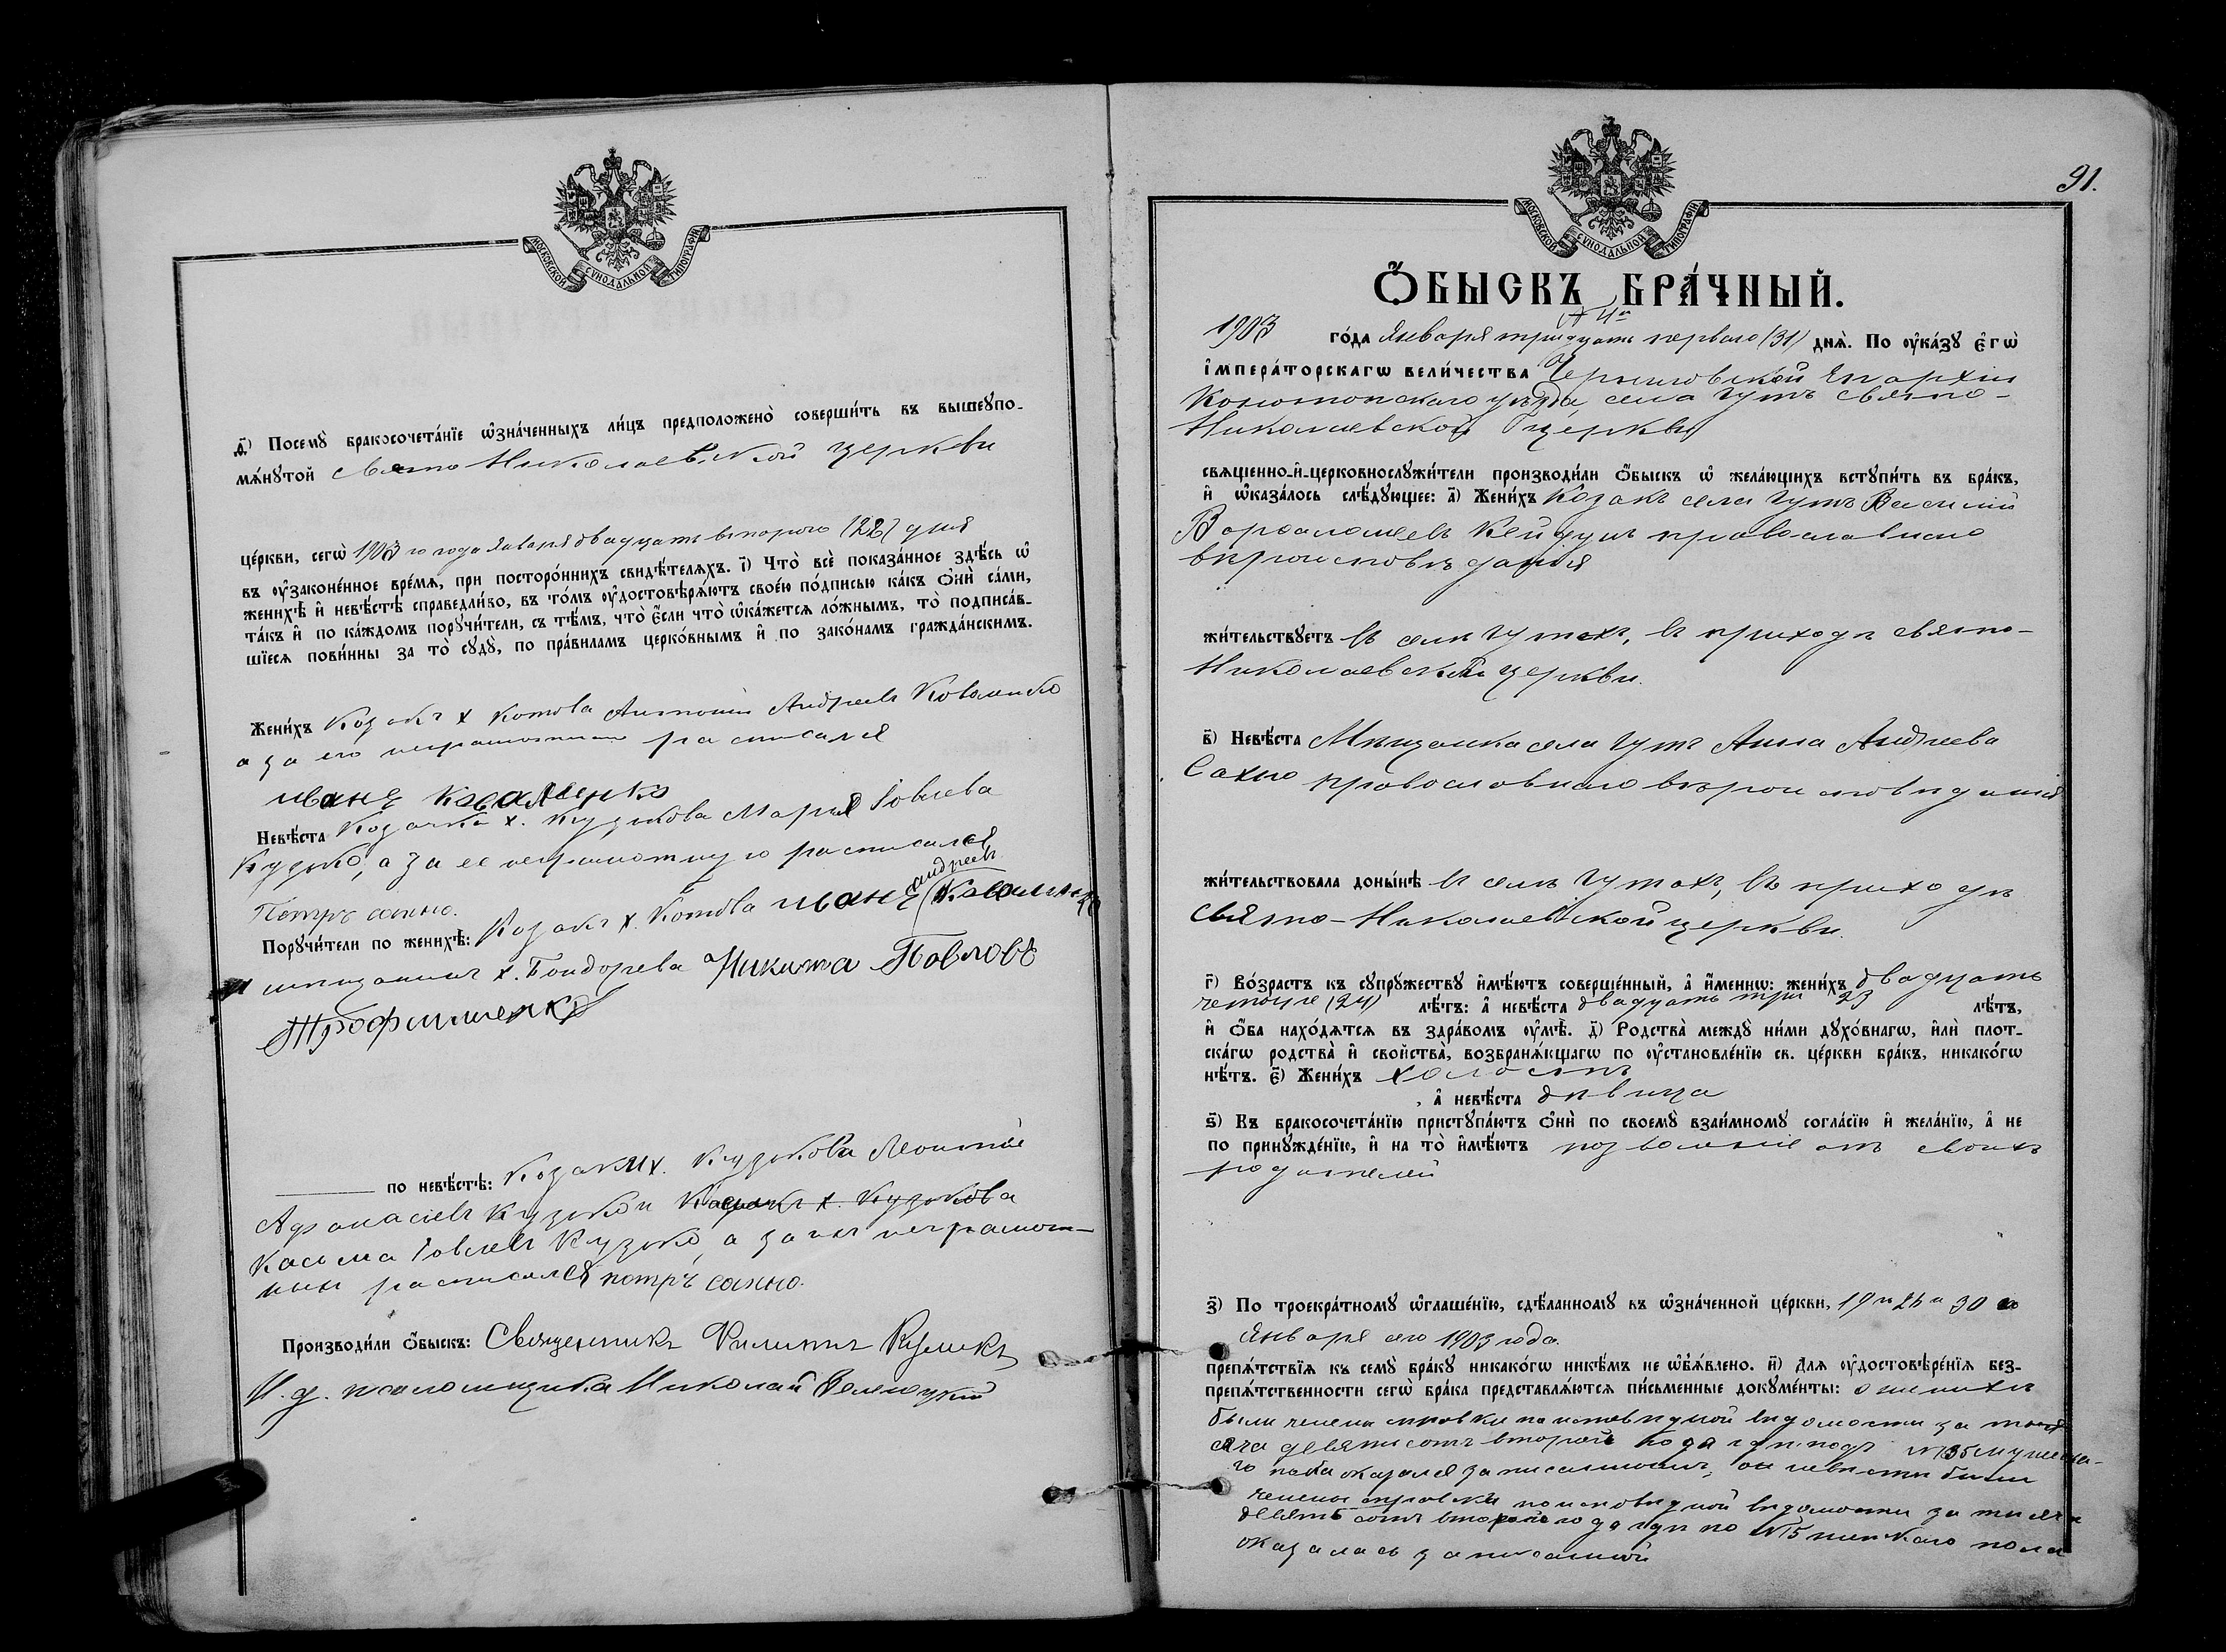 МОСКОВСКОЙ СѴНОДАЛЬНОЙ ТИПОГРАФІИ
д҃) Посемꙋ̀ бракосочета́нїе ѡ҆зна́ченныхъ ли́цъ предположено̀ соверши́ть въ вышеꙋпо-
мѧ́нꙋтой свято Николаевской церкви
це́ркви, сегѡ̀ 1903 го года Января двадцать второго (22) дня
въ ᲂу҆зако́нѐнное вре́мѧ, при посторо́ннихъ свидѣ́телѧхъ. і҃) Что̀ всѐ показа́нное здѣ́сь ѡ҆
женихѣ̀ и҆ невѣ́стѣ справедли́во, въ то́мъ ᲂу҆достовѣрѧ́ютъ свое́ю по́дписью ка́къ ѻ҆нѝ са́ми,
та́къ и҆ по ка́ждомъ порꙋчи́тели, съ тѣ́мъ, что̀ є҆́сли что̀ ѡ҆ка́жетсѧ ло́жнымъ, то̀ подписа́в-
шїесѧ пови́нны за то̀ сꙋдꙋ̀, по пра́виламъ церко́внымъ и҆ по зако́намъ гражда́нскимъ.
Жени́хъ Козакъ х Котова Антоній Андреевъ Коваленко
а за его неграмотнаго расписался
иванъ коваленко
Невѣ́ста Козачка х. Кузькова Марія Іовлева
Кузько, а за ее неграмотную росписался
Петръ сахно.
Порꙋчи́тели по женихѣ̀: Козакъ х. Котова иванъ андреевъ Коваленко
и мещанинъ х. Бондарева Никита Павловъ
Трофименко
по невѣ́стѣ: Козаки х. Кузькова Леонтій
Афанасіевъ Кузько и Козакъ х. Кузькова
Касьма Іовлевъ Кузько, а за ихъ неграмот-
ныхъ расписался петръ сахно.
Производи́ли ѻ҆́быскъ: Священникъ Филиппъ
И. д. псаломщика Николай
91.
МОСКОВСКОЙ СѴНОДАЛЬНОЙ ТИПОГРАФІИ
Ѻ҆́БЫСКЪ БРА́ЧНЫЙ.
1903 го́да Января тридцать перваго (31) днѧ̀. По ᲂу҆ка́зꙋ є҆гѡ̀
і҆мпера́торскагѡ вели́чества Черниговской Епархіи
Конотопскаго уѣзда, села Гутъ свято-
Николаевской церкви
свѧщенно-и҆-церковнослꙋжи́тели производи́ли ѻ҆́быскъ ѡ҆ жела́ющихъ встꙋпи́ть въ бра́къ,
и҆ ѡ҆каза́лось слѣ́дꙋющее: а҃) Жени́хъ Козакъ села Гутъ Василій
Варфоломеевъ Кейдунъ православнаго
вѣроисповѣданія
жи́тельствꙋетъ въ селѣ Гутахъ, въ приходѣ свято-
Николаевской церкви.
в҃) Невѣ́ста Мѣщанка села Гутъ Анна Андреева
Сахно православнаго вѣроисповѣданія
жи́тельствовала доны́нѣ въ селѣ Гутахъ, въ приходѣ
свято-Николаевской церкви.
г҃) Во́зрастъ къ сꙋпрꙋ́жествꙋ и҆мѣ́ютъ соверше́нный, а҆ и҆́меннѡ: жени́хъ двадцать
четыре (24) лѣ́тъ: а҆ невѣ́ста двадцать три 23 лѣ́тъ,
и҆ ѻ҆́ба нахо́дѧтсѧ въ здра́вомъ ᲂу҆мѣ̀. д҃) Родства̀ междꙋ̀ ни́ми дꙋхо́внагѡ, и҆лѝ плот-
ска́гѡ родства̀ и҆ свойства̀, возбранѧ́ющагѡ по ᲂу҆становле́нїю св. це́ркви бра́къ, никако́гѡ
нѣ́тъ. є҃) Жени́хъ холостъ
, а҆ невѣ́ста дѣвица
ѕ҃) Къ бракосочета́нїю пристꙋпа́ютъ ѻ҆нѝ по своемꙋ̀ взаи́мномꙋ согла́сїю и҆ жела́нїю, а҆ не
по принꙋжде́нїю, и҆ на то̀ и҆мѣ́ютъ позволеніе отъ своихъ
родителей
з҃) По троекра́тномꙋ ѡ҆глаше́нїю, сдѣ́ланномꙋ въ ѡ҆зна́ченной це́ркви, 19 и 26 и 30 го
Января сего 1903 года.
препѧ́тствїѧ къ семꙋ̀ бра́кꙋ никако́гѡ никѣ́мъ не ѡ҆б̾ѧ́влено. и҃) Длѧ ᲂу҆достовѣре́нїѧ без-
препѧ́тственности сегѡ̀ бра́ка представлѧ́ютсѧ пи́сьменные докꙋме́нты: о женихѣ
были учинены справки по исповѣдной вѣдомости за тыся
сяча девятисотъ второй года гдѣ подъ № 135 мужеска-
го пола оказался записаннымъ, о невѣсты были
учинены справки по исповѣдной вѣдомости за тысяч
девятьсотъ второго года гдѣ по № 15 женскаго пола
оказалась записанной